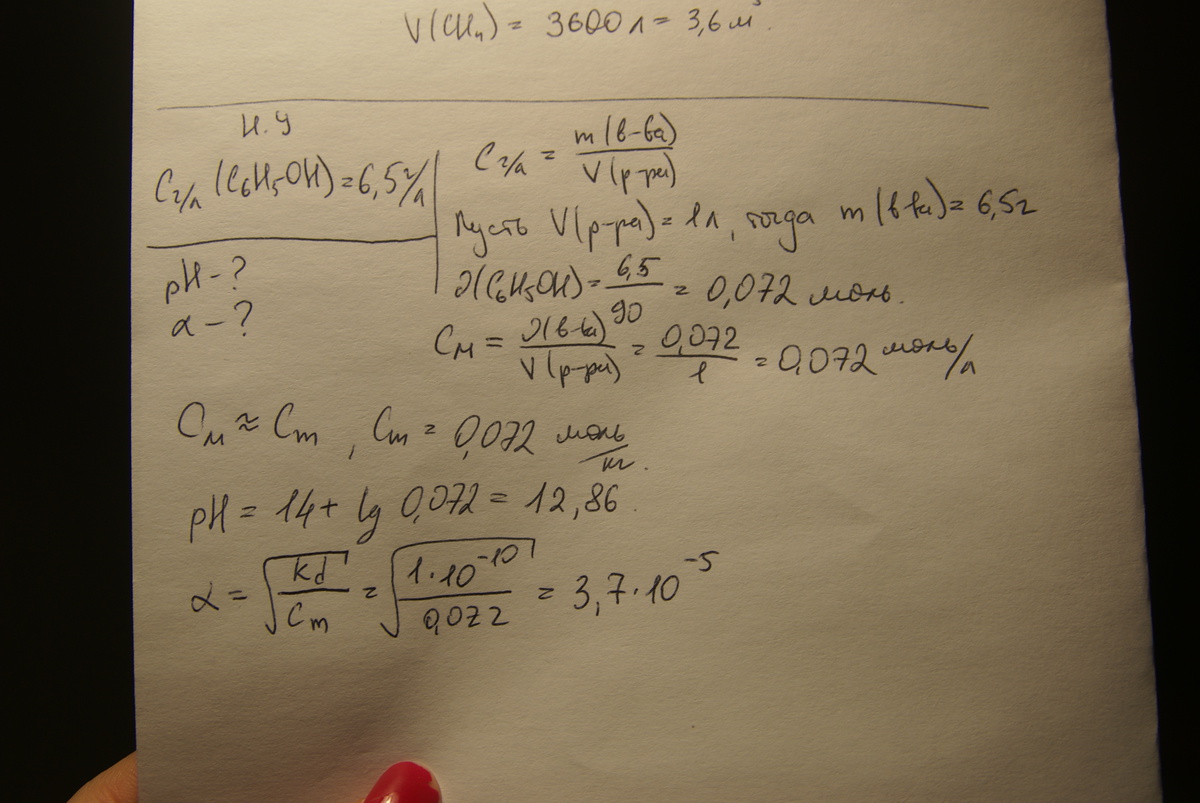 V(CH₄) = 3600 л = 3,6 м³.
н.у
Cг/л (C₆H₅OH) = 6,5 г/л
pH - ?
α - ?
Cг/л = m(в-ва)/V(р-ра)
Пусть V(р-ра) = 1л, тогда m(в-ва) = 6,5г
ν(C₆H₅OH) = 6,5/90 = 0,072 моль.
Cм = ν(в-ва)/V(р-ра) = 0,072/1 = 0,072 моль/л
Cм ≈ Cm, Cm = 0,072 моль/кг.
pH = 14 + lg 0,072 = 12,86.
α = √(kd/Cm) = √(1·10⁻¹⁰/0,072) = 3,7·10⁻⁵